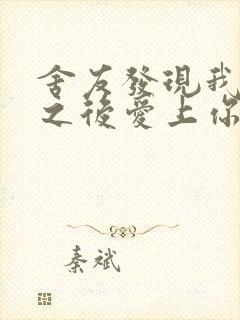 舍友發現我
之後愛上你
秦斌